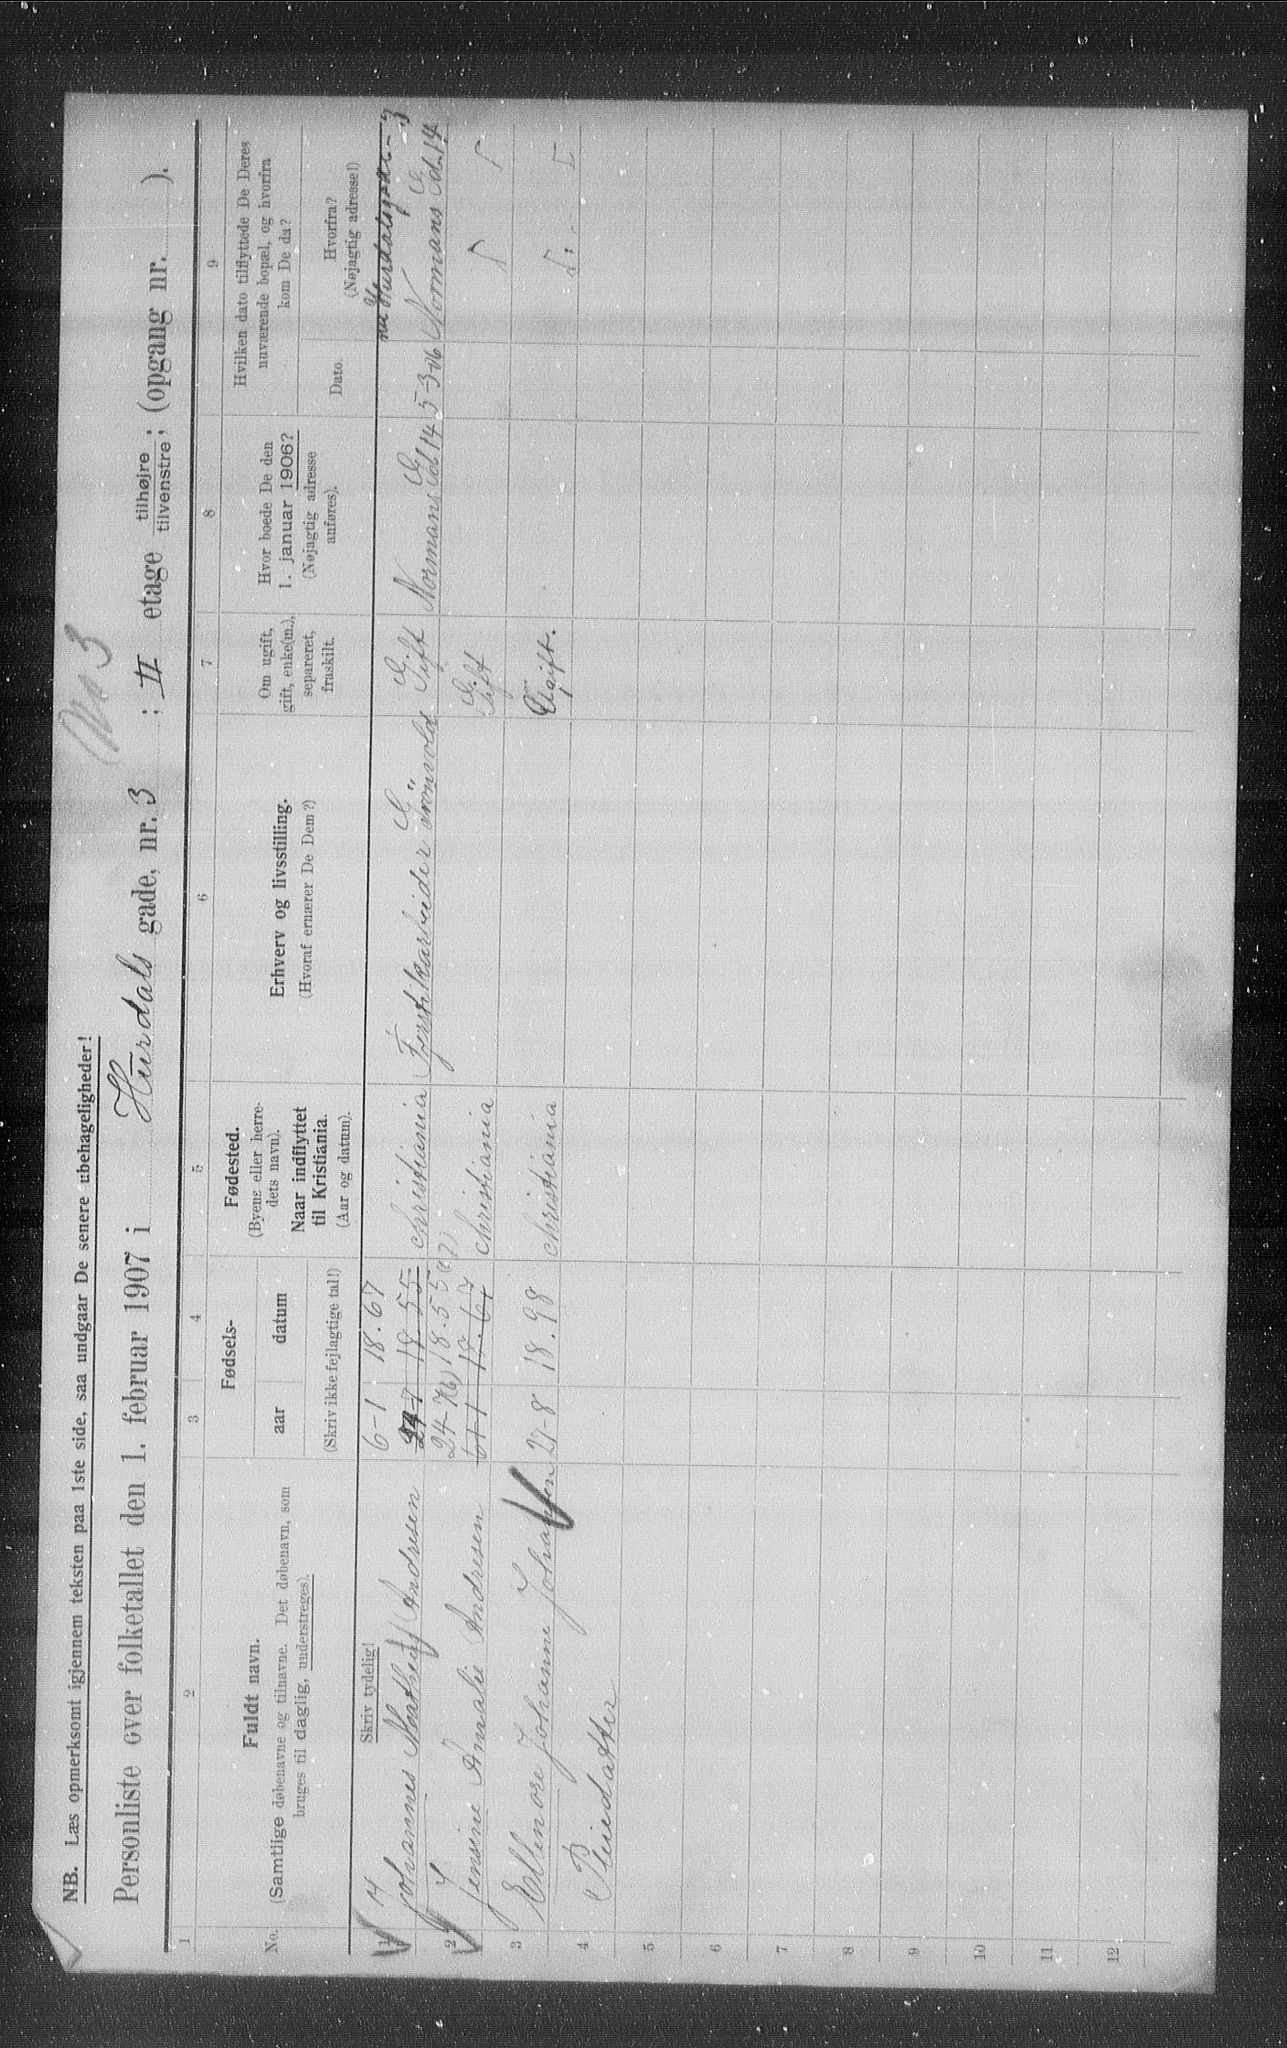 NB. Læs opmerksomt igjennem teksten paa 1ste side, saa undgaar De senere ubehageligheder!
No 3
Personliste over folketallet den 1. februar 1907 i Hurdals gade, nr. 3 ; II etage tilhøjre tilvenstre; (opgang nr. ).
1 2 3 4 5 6 7 8 9
No.
Fuldt navn.
(Samtlige døbenavne og tilnavne. Det døbenavn, som
bruges til daglig, understreges).
Fødsels-
aar datum
Fødested.
(Byens eller herre-
dets navn).
Naar indflyttet
til Kristiania.
(Aar og datum).
Erhverv og livsstilling.
(Hvoraf ernærer De Dem?)
Om ugift,
gift, enke(m.),
separeret,
fraskilt.
Hvor boede De den
1. januar 1906?
(Nøjagtig adresse
anføres).
Hvilken dato tilflyttede De Deres
nuværende bopæl, og hvorfra
kom De da?
Dato.
Hvorfra?
(Nøjagtig adresse!)
Skriv tydelig!
(Skriv ikke fejlagtige tal!)
6-1 18.67
Hurdalsgade - 3
1 Johannes Andresen 24-7 18.55 christiania Gift Normans Gd 14 5-3-06 Normans Gd. 14
24-7 18.55
2 Jensine Amalie Andresen 6+1 18.67 christiania Gift
3 Ellenore Johanne Johansen 27-8 18.98 christiania Ugift.
4 Pleiedatter
5
6
7
8
9
10
11
12